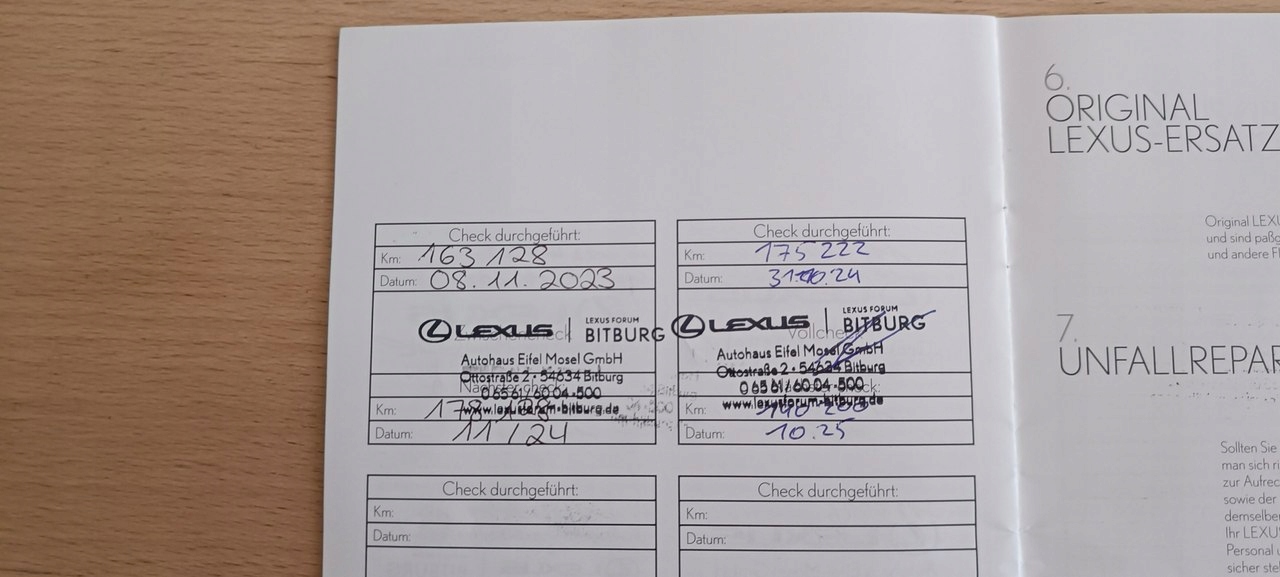 Check durchgeführt:
Km: 163 128
Datum: 08.11.2023
Zwischencheck
LEXUS | LEXUS FORUM BITBURG
Autohaus Eifel Mosel GmbH
Ottostraße 2 • 54634 Bitburg
0 65 61 / 60 04 -500
www.lexusforum-bitburg.de
Km: 178 128
Datum: 11/24
Check durchgeführt:
Km: 175 222
Datum: 31.10.24
Vollcheck
LEXUS | LEXUS FORUM BITBURG
Autohaus Eifel Mosel GmbH
Ottostraße 2 • 54634 Bitburg
0 65 61 / 60 04 -500
www.lexusforum-bitburg.de
Km:
Datum: 10.25
Check durchgeführt:
Km:
Datum:
Check durchgeführt:
Km:
Datum:
6.
ORIGINAL
LEXUS-ERSATZ
Original LEXU
und sind paßg
und andere Fl
7.
UNFALLREPAR
Sollten Sie
man sich ri
zur Aufrec
sowie der
demselben
Ihr LEXUS
Personal u
sicher ste